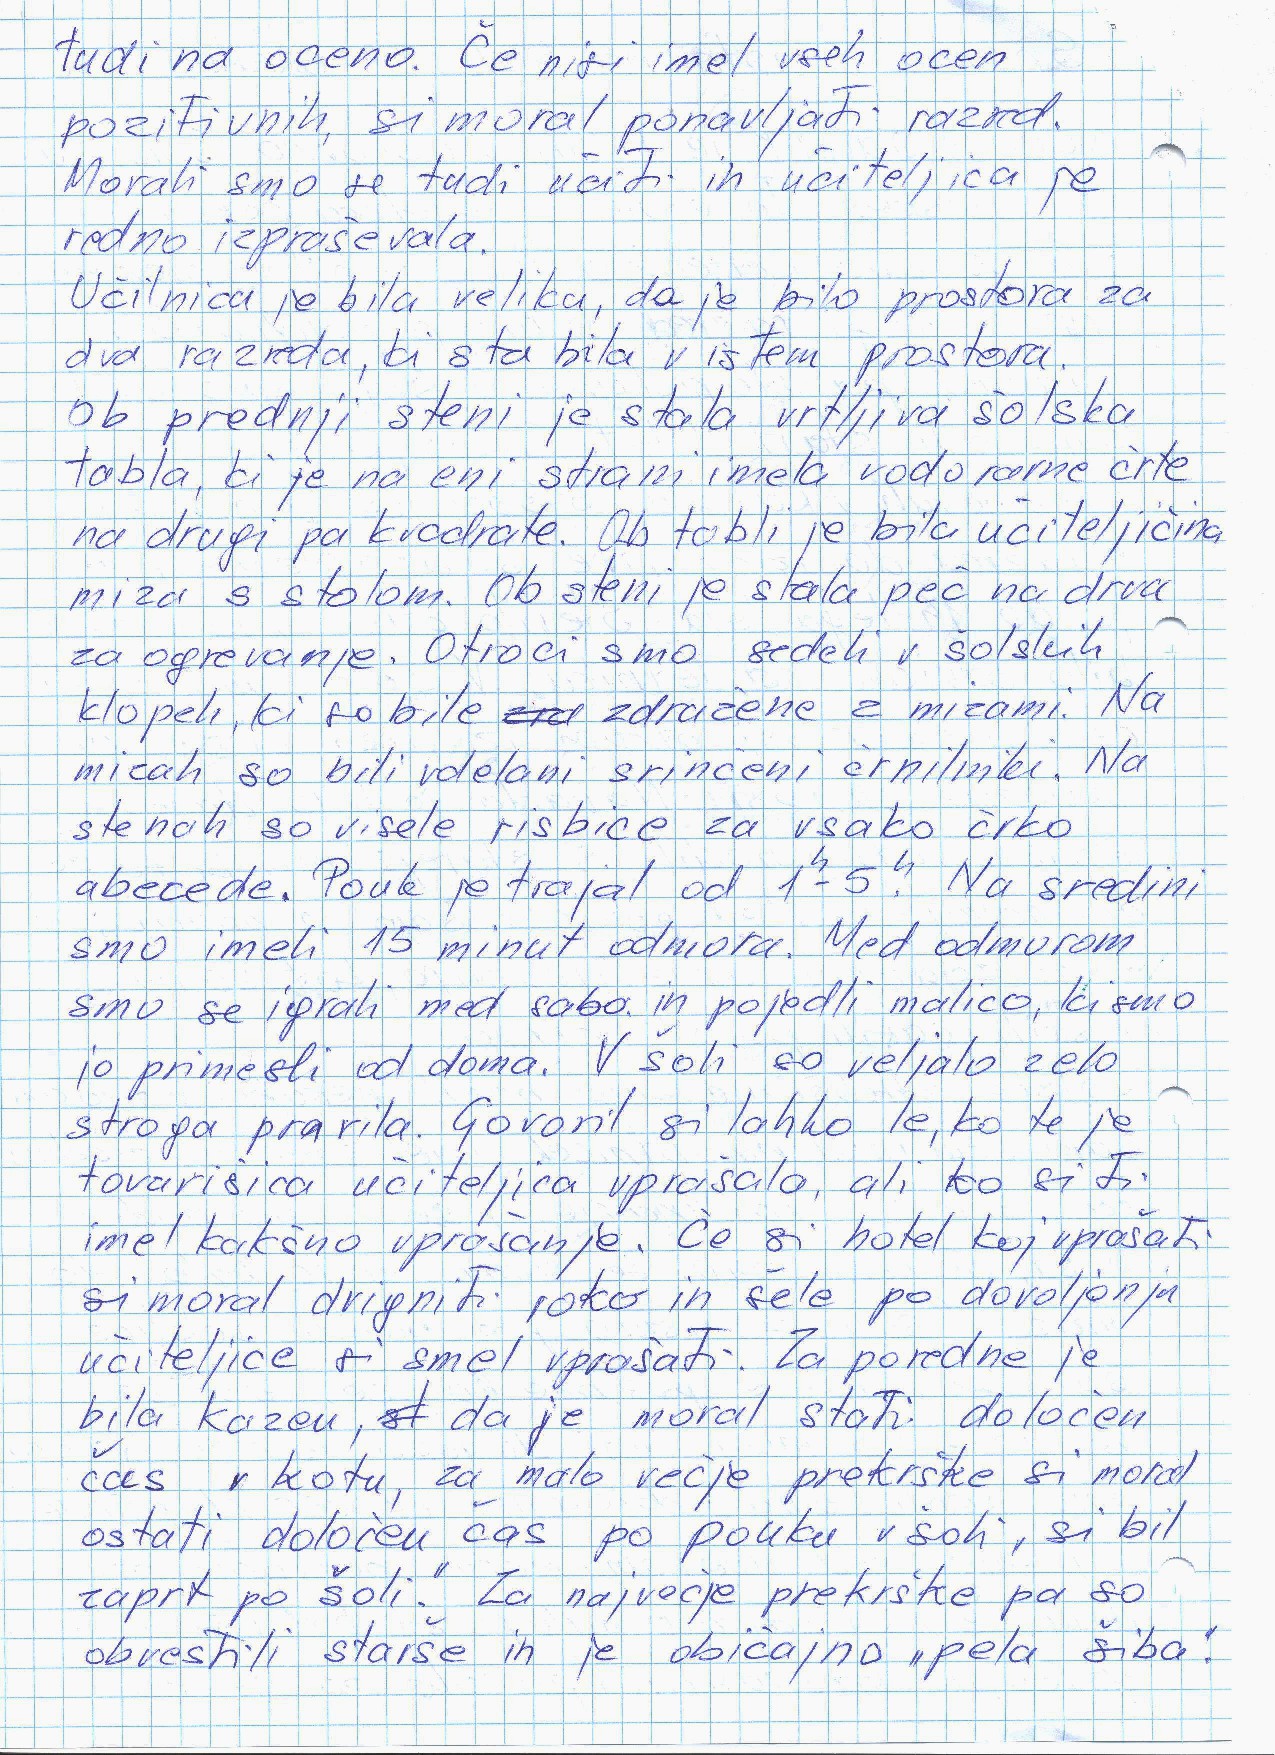 tudi na oceno. Če nisi imel vseh ocen
pozitivnih, si moral ponavljati razred.
Morali smo se tudi učiti in učiteljica je
redno izpraševala.
Učilnica je bila velika, da je bilo prostora za
dva razreda, ki sta bila v istem prostoru.
Ob prednji steni je stala vrtljiva šolska
tabla, ki je na eni strani imela vodoravne črte
na drugi pa kvadrate. Ob tabli je bila učiteljičina
miza s stolom. Ob steni je stala peč na drva
za ogrevanje. Otroci smo sedeli v šolskih
klopeh, ki so bile zdražene z mizami. Na
mizah so bili vdelani svinčeni črnilniki. Na
stenah so visele risbice za vsako črko
abecede. Pouk je trajal od 1h - 5h. Na sredini
smo imeli 15 minut odmora. Med odmorom
smo se igrali med sabo in pojedli malico, ki smo
jo prinesli od doma. V šoli so veljalo zelo
stroga pravila. Govoril si lahko le, ko te je
tovarišica učiteljica vprašala, ali ko si ti
imel kakšno vprašanje. Če si hotel kej vprašati
si moral dvigniti roko in šele po dovoljenju
učiteljice si smel vprašati. Za poredne je
bila kazen, st da je moral stati določen
čas v kotu, za malo večje prekrške si moral
ostati določen čas po pouku v šoli, si bil
zaprt po šoli." Za največje prekrške pa so
obvestili starše in je običajno „pela šiba".